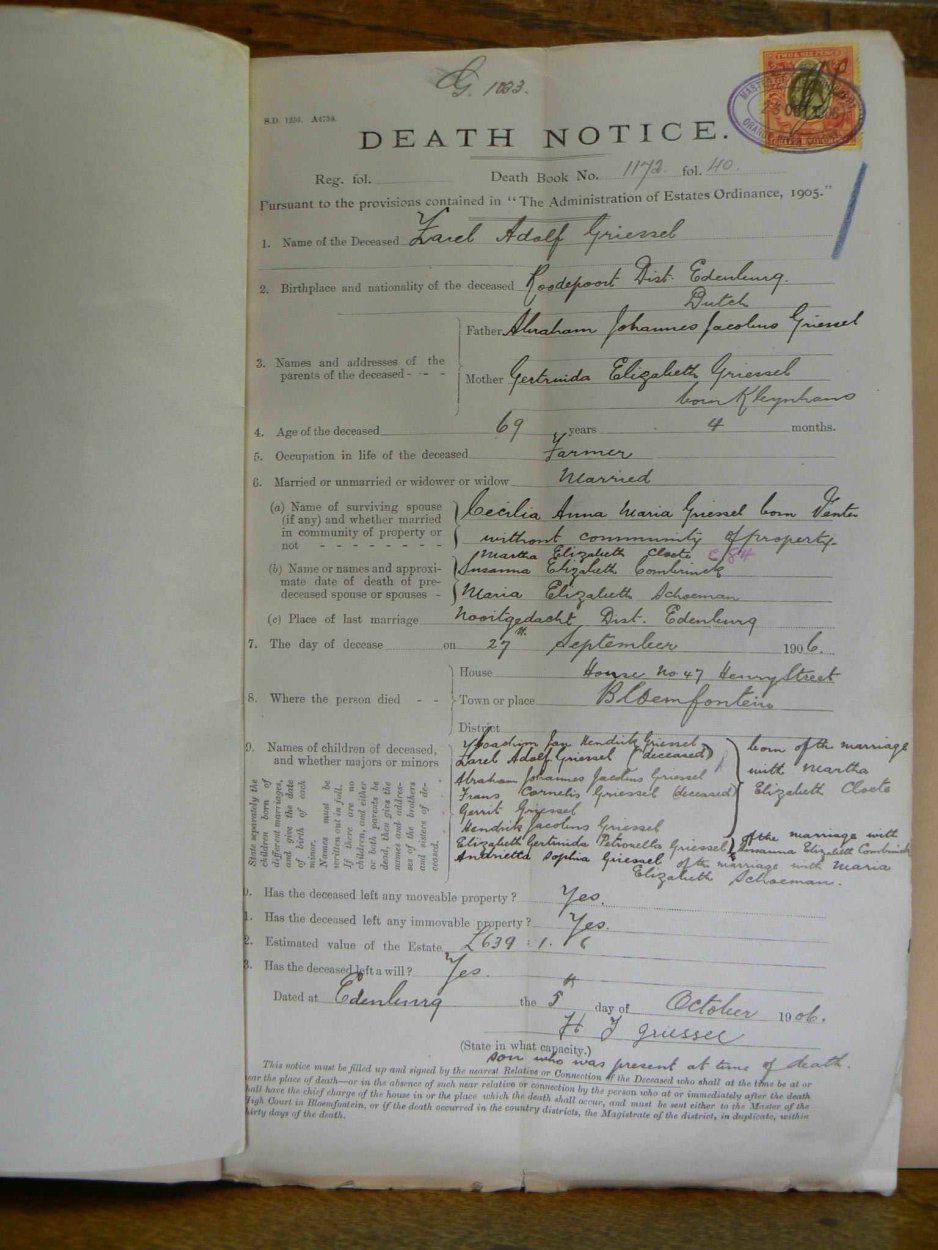 G. 1033.
S.D. 1256. A4758.
DEATH NOTICE.
Reg. fol. Death Book No. 1172 fol. 40.
Pursuant to the provisions contained in "The Administration of Estates Ordinance, 1905."
1. Name of the Deceased Karel Adolf Griessel
2. Birthplace and nationality of the deceased Roodepoort Dist. Edenburg.
Dutch
3. Names and addresses of the parents of the deceased - - -
Father Abraham Johannes Jacobus Griessel
Mother Gertruida Elizabeth Griessel
born Kleynhans
4. Age of the deceased 69 years 4 months.
5. Occupation in life of the deceased Farmer
6. Married or unmarried or widower or widow Married
(a) Name of surviving spouse (if any) and whether married in community of property or not - - - - - - -
Cecilia Anna Maria Griessel born Venter
without community of property.
(b) Name or names and approximate date of death of predeceased spouse or spouses -
Martha Elizabeth Cloete
Susanna Elizabeth Combrinck
Maria Elizabeth Schoeman
(c) Place of last marriage Nooitgedacht Dist. Edenburg
7. The day of decease on 27th September 1906.
8. Where the person died - -
House House No 47 Henry Street
Town or place Bloemfontein
District
9. Names of children of deceased, and whether majors or minors
State separately the children born of different marriages, and give the date of birth of each minor.
Names must be written out in full.
If there are no children, and either or both parents be dead, then gives the names and addresses of the brothers and sisters of deceased.
Joachim Jan Hendrik Griessel
Karel Adolf Griessel (deceased)
Abraham Johannes Jacobus Griessel
Frans Cornelis Griessel (deceased)
Gerrit Griessel
Hendrik Jacobus Griessel
born of the marriage
with Martha
Elizabeth Cloete
Elizabeth Gertruida Petronella Griessel of the marriage with
Susanna Elizabeth Combrinck
Andrietta Sophia Griessel of the marriage with Maria
Elizabeth Schoeman.
0. Has the deceased left any moveable property? Yes.
1. Has the deceased left any immovable property? Yes.
2. Estimated value of the Estate £639 : 1. 6
3. Has the deceased left a will? Yes.
Dated at Edenburg the 5th day of October 1906.
H J Griessel
(State in what capacity.)
son who was present at time of death.
This notice must be filled up and signed by the nearest Relatives or Connection of the Deceased who shall at the time be at or
near the place of death—or in the absence of such near relative or connection by the person who at or immediately after the death
shall have the chief charge of the house in or the place which the death shall occur, and must be sent either to the Master of the
High Court in Bloemfontein, or if the death occurred in the country districts, the Magistrate of the district, in duplicate, within
thirty days of the death.